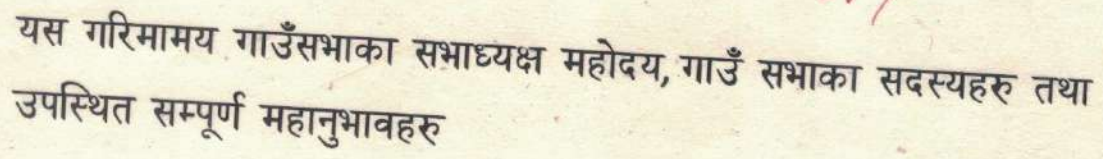 यस गरिमामय गाउँसभाका सभाध्यक्ष महोदय, गाउँ सभाका सदस्यहरु तथा
उपस्थित सम्पूर्ण महानुभावहरु